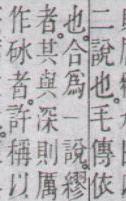 二說也。毛傳依
也。合爲一說。繆
者。其與深則厲
作砅者。許稱以